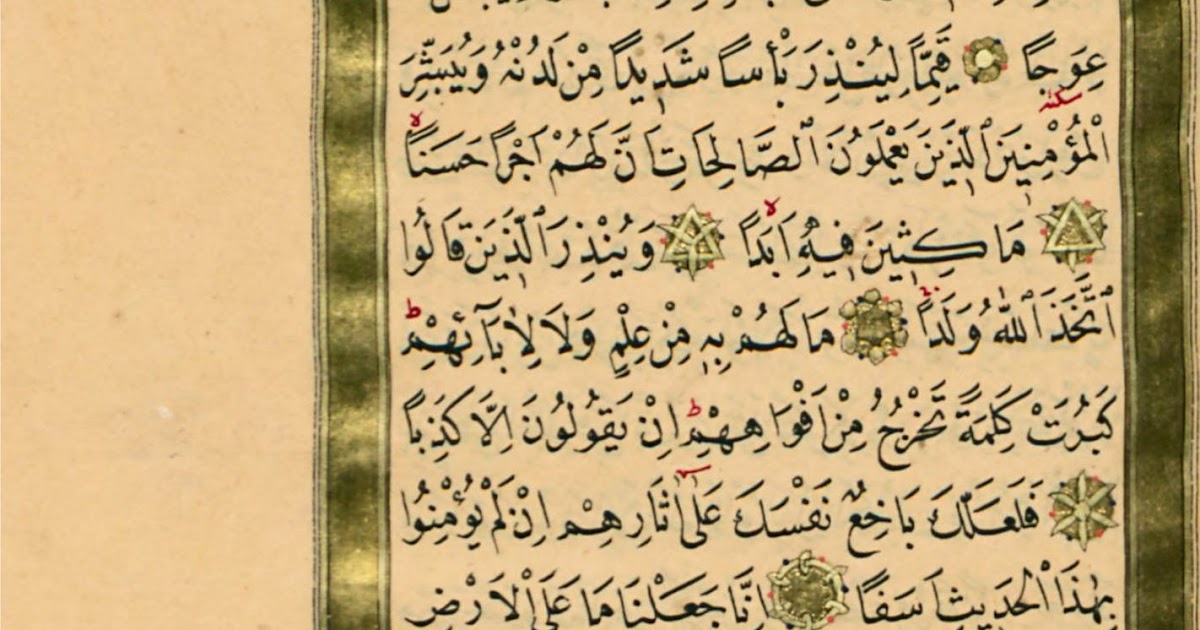 عِوَجًا قَيِّمًا لِيُنْذِرَ بَأْسًا شَدِيدًا مِنْ لَدُنْهُ وَيُبَشِّرَ
سكته
الْمُؤْمِنِينَ الَّذِينَ يَعْمَلُونَ الصَّالِحَاتِ اَنَّ لَهُمْ اَجْرًا حَسَنًا لا
مَاكِثِينَ فِيهِ اَبَدًا لا وَيُنْذِرَ الَّذِينَ قَالُوا
اتَّخَذَ اللهُ وَلَدًا مَا لَهُمْ بِهِ مِنْ عِلْمٍ وَلَا لِاٰبَآئِهِمْ ط
كَبُرَتْ كَلِمَةً تَخْرُجُ مِنْ اَفْوَاهِهِمْ ط اِنْ يَقُولُونَ اِلَّا كَذِبًا
فَلَعَلَّكَ بَاخِعٌ نَفْسَكَ عَلٰٓى اٰثَارِهِمْ اِنْ لَمْ يُؤْمِنُوا
بِهٰذَا الْحَدِيثِ اَسَفًا اِنَّا جَعَلْنَا مَا عَلَى الْاَرْضِ